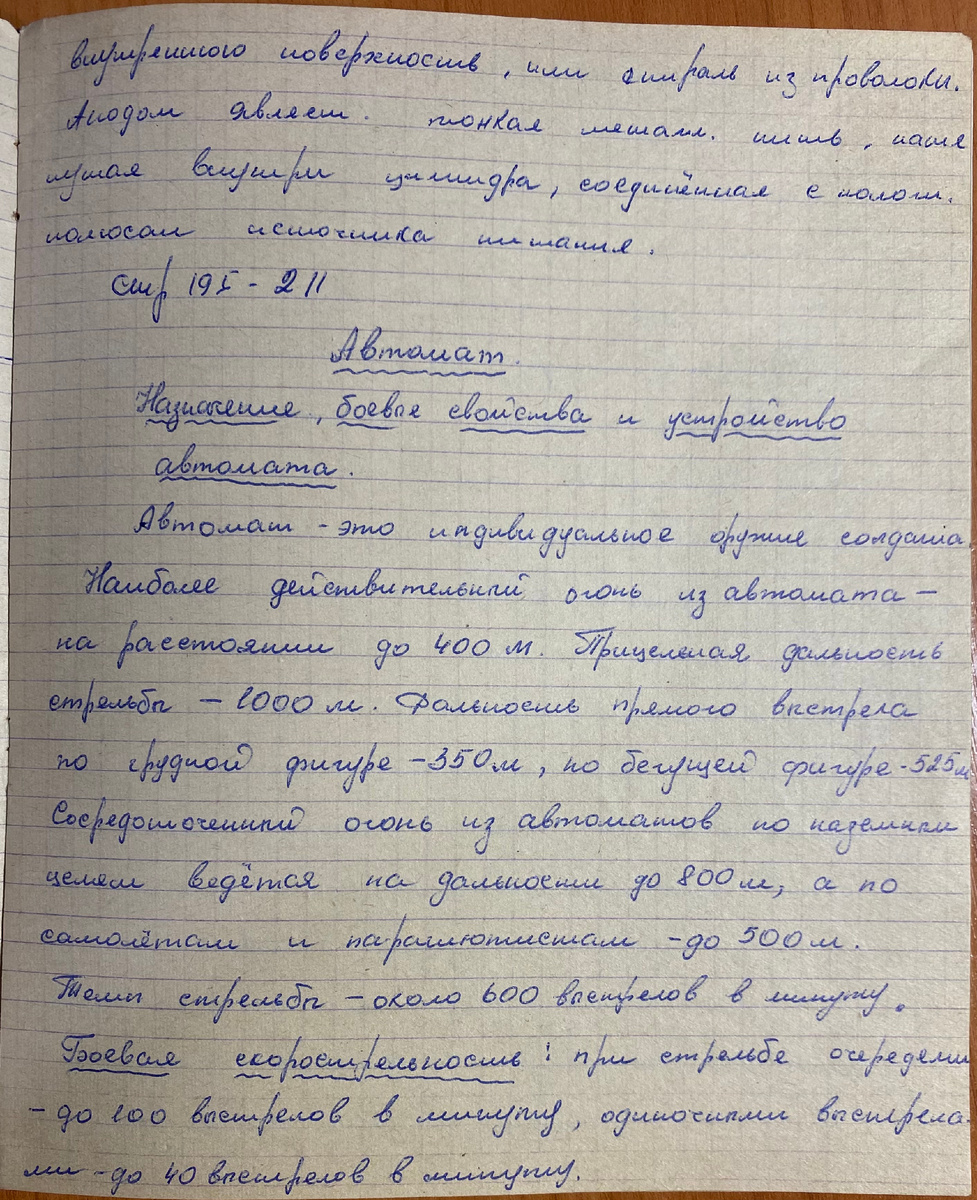 внутреннюю поверхность, или спираль из проволоки.
Анодом являет. тонкая металл. нить, натя
нутая внутри цилиндра, соединённая с полож.
полюсом источника питания.
Стр 195 - 211
Автомат.
Назначение, боевые свойства и устройство
автомата.
Автомат - это индивидуальное оружие солдата.
Наиболее действительный огонь из автомата —
на расстоянии до 400 м. Прицельная дальность
стрельбы — 1000 м. Дальность прямого выстрела
по грудной фигуре - 350 м, по бегущей фигуре - 525 м
Сосредоточенный огонь из автоматов по наземным
целям ведётся на дальности до 800 м, а по
самолётам и парашютистам - до 500 м.
Темп стрельбы — около 600 выстрелов в минуту.
Боевая скорострельность: при стрельбе очередями
- до 100 выстрелов в минуту, одиночными выстрела-
ми - до 40 выстрелов в минуту.